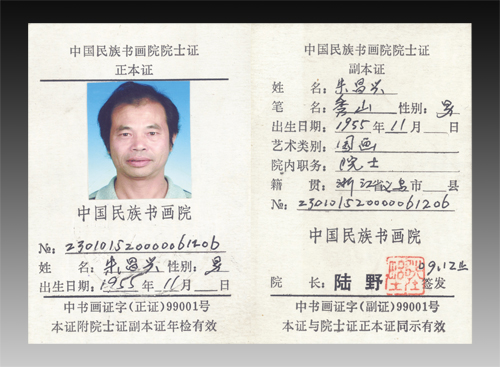 中国民族书画院院士证
正本证
中国民族书画院
№: 23010152000061206
姓 名: 朱昌兴 性别: 男
出生日期: 1955 年 11 月 日
中书画证字(正证)99001号
本证附院士证副本证年检有效
中国民族书画院院士证
副本证
姓 名: 朱昌兴
笔 名: 秀山 性别: 男
出生日期: 1955 年 11 月 日
艺术类别: 国画
院内职务: 院士
籍 贯: 浙江省义乌市 县
№: 23010152000061206
中国民族书画院
院 长: 陆 野 签发
中书画证字(副证)99001号
本证与院士证正本证同示有效